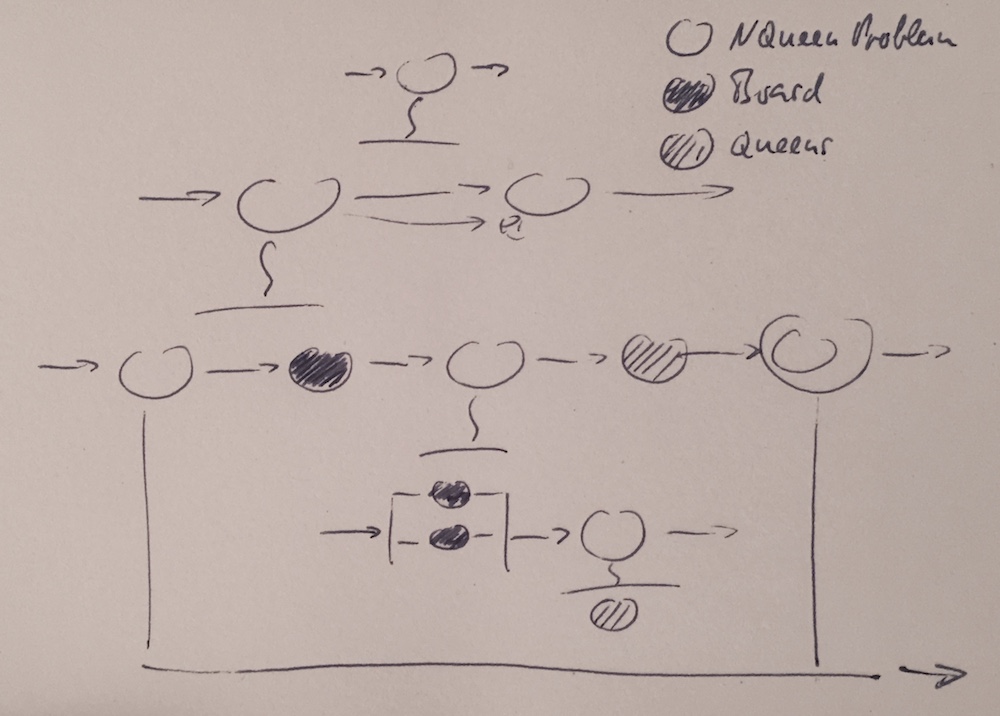 NQueen Problem
Board
Queens